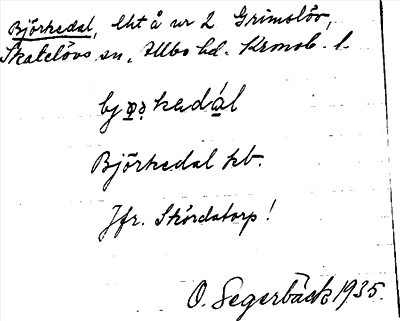 Björkedal, lht å nr 2 Grimslöv,
Skatelövs sn, Allbo hd. Kronob. l.
bjørkadál
Björkedal kb.
Jfr. Skördatorp!
O. Segerbäck 1935.